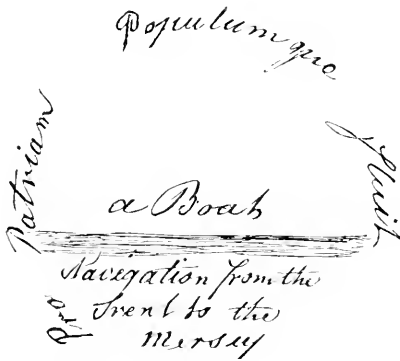 Pro Patriam Populumque fluit
a Boat
Navigation from the
Trent to the
Mersey